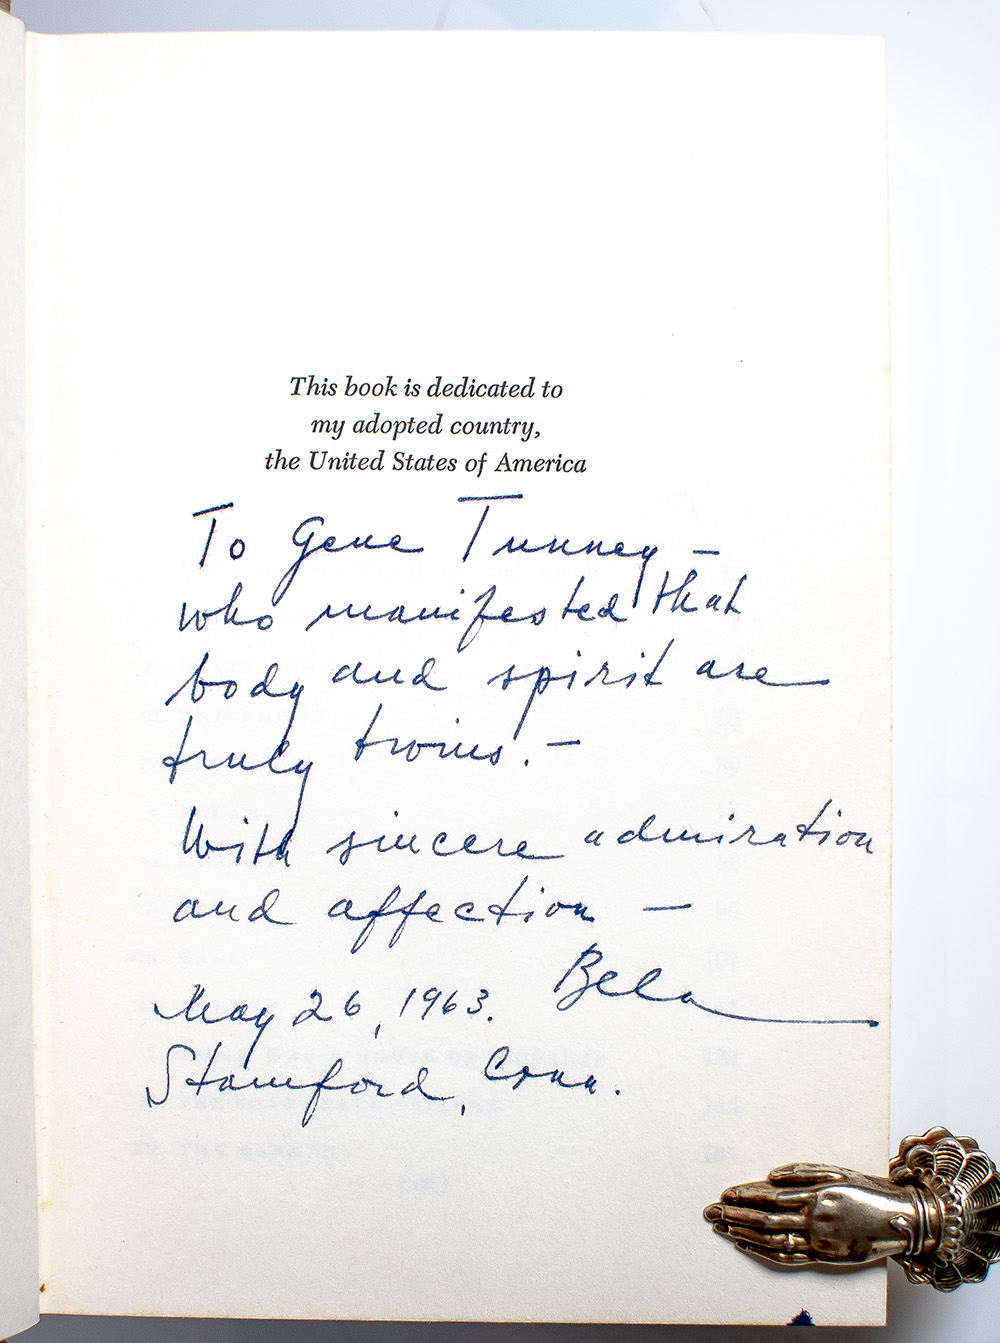 This book is dedicated to
my adopted country,
the United States of America
To Gene Tunney –
who manifested that
body and spirit are
truly twins. –
With sincere admiration
and affection –
Bela
May 26, 1963.
Stamford, Conn.